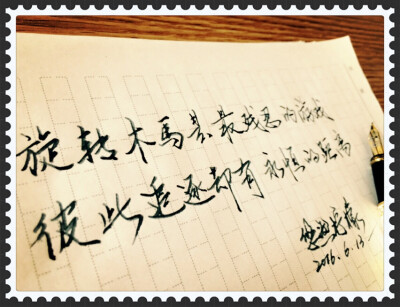 旋转木馬是最残忍的游戏
彼此追逐却有永恒的距离
2016.6.13